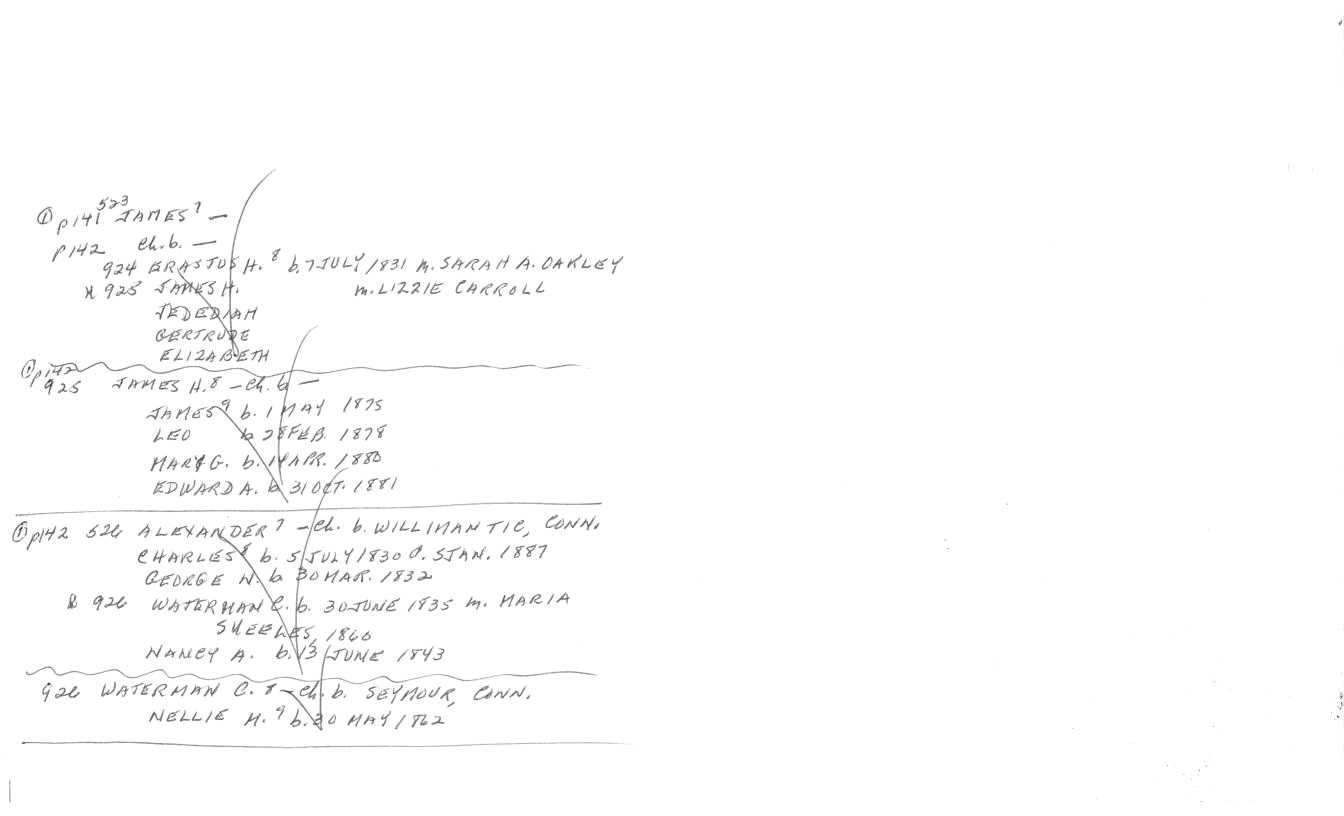 ① p141 523 JAMES 7 —
p142 Ch. b. —
924 ERASTUS H. 8 b. 7 JULY 1831 m. SARAH A. OAKLEY
925 JAMES H. m. LIZZIE CARROLL
JEDEDIAH
GERTRUDE
ELIZABETH
① p142
925 JAMES H. 8 — Ch. b —
JAMES 9 b. 1 MAY 1875
LEO b 28 FEB. 1878
MARY G. b. 14 APR. 1880
EDWARD A. b 31 OCT. 1881
① p142 526 ALEXANDER 7 — Ch. b. WILLIMANTIC, CONN.
CHARLES 8 b. 5 JULY 1830 d. 5 JAN. 1887
GEORGE W. b 30 MAR. 1832
926 WATERMAN C. b. 30 JUNE 1835 m. MARIA
1860
NANCY A. b. 13 JUNE 1843
926 WATERMAN C. 8 — Ch. b. SEYMOUR, CONN.
NELLIE M. 9 b. 30 MAY 1862